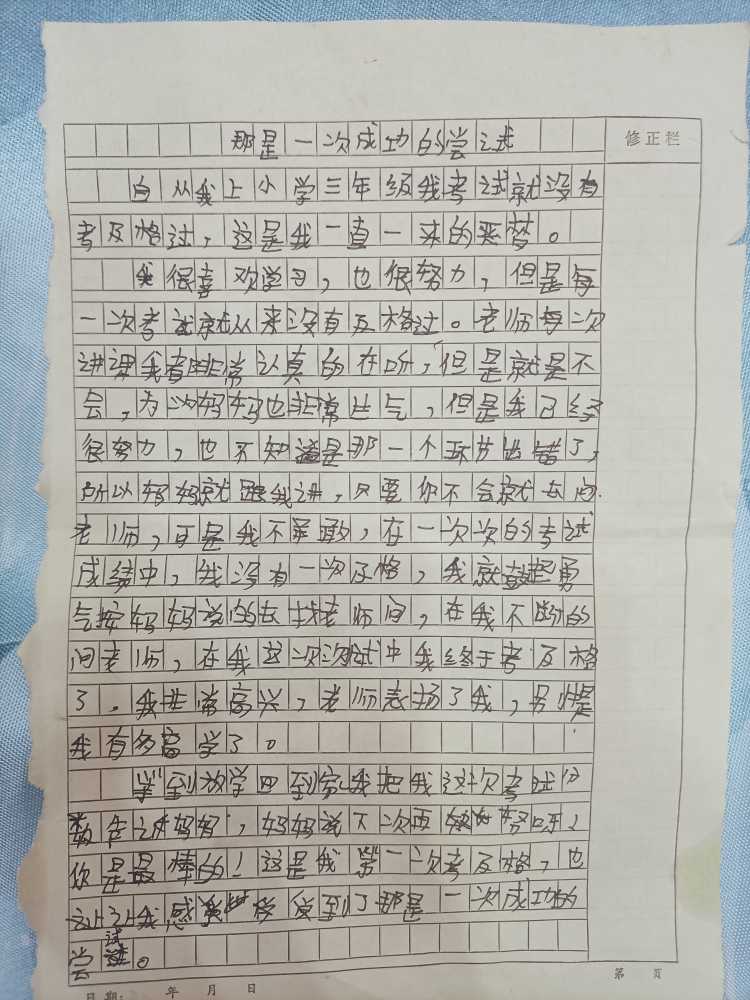 那是一次成功的尝试
修正栏
自从我上小学三年级我考试就没有
考及格过，这是我一直一来的恶梦。
我很喜欢学习，也很努力，但是每
一次考试就从来没有及格过。老师每次
讲课我都非常认真的在听，但是就是不
会，为此妈妈也非常生气，但是我已经
很努力，也不知道是那一个环节出错了，
所以妈妈就跟我讲，只要你不会就去问
老师，可是我不是敢，在一次次的考试
成绩中，我没有一次及格，我就鼓起勇
气按妈妈说的去找老师问，在我不断的
问老师，在我这次次试中我终于考及格
了。我非常高兴，老师表扬了我，别提
我有多高兴了。
到放学回到家我把我这次考试分
数告诉妈妈，妈妈说下次再努力呀！
你是最棒的！这是我第一次考及格，也
让我感受到了那是一次成功的
尝试。
第 页
日期： 年 月 日